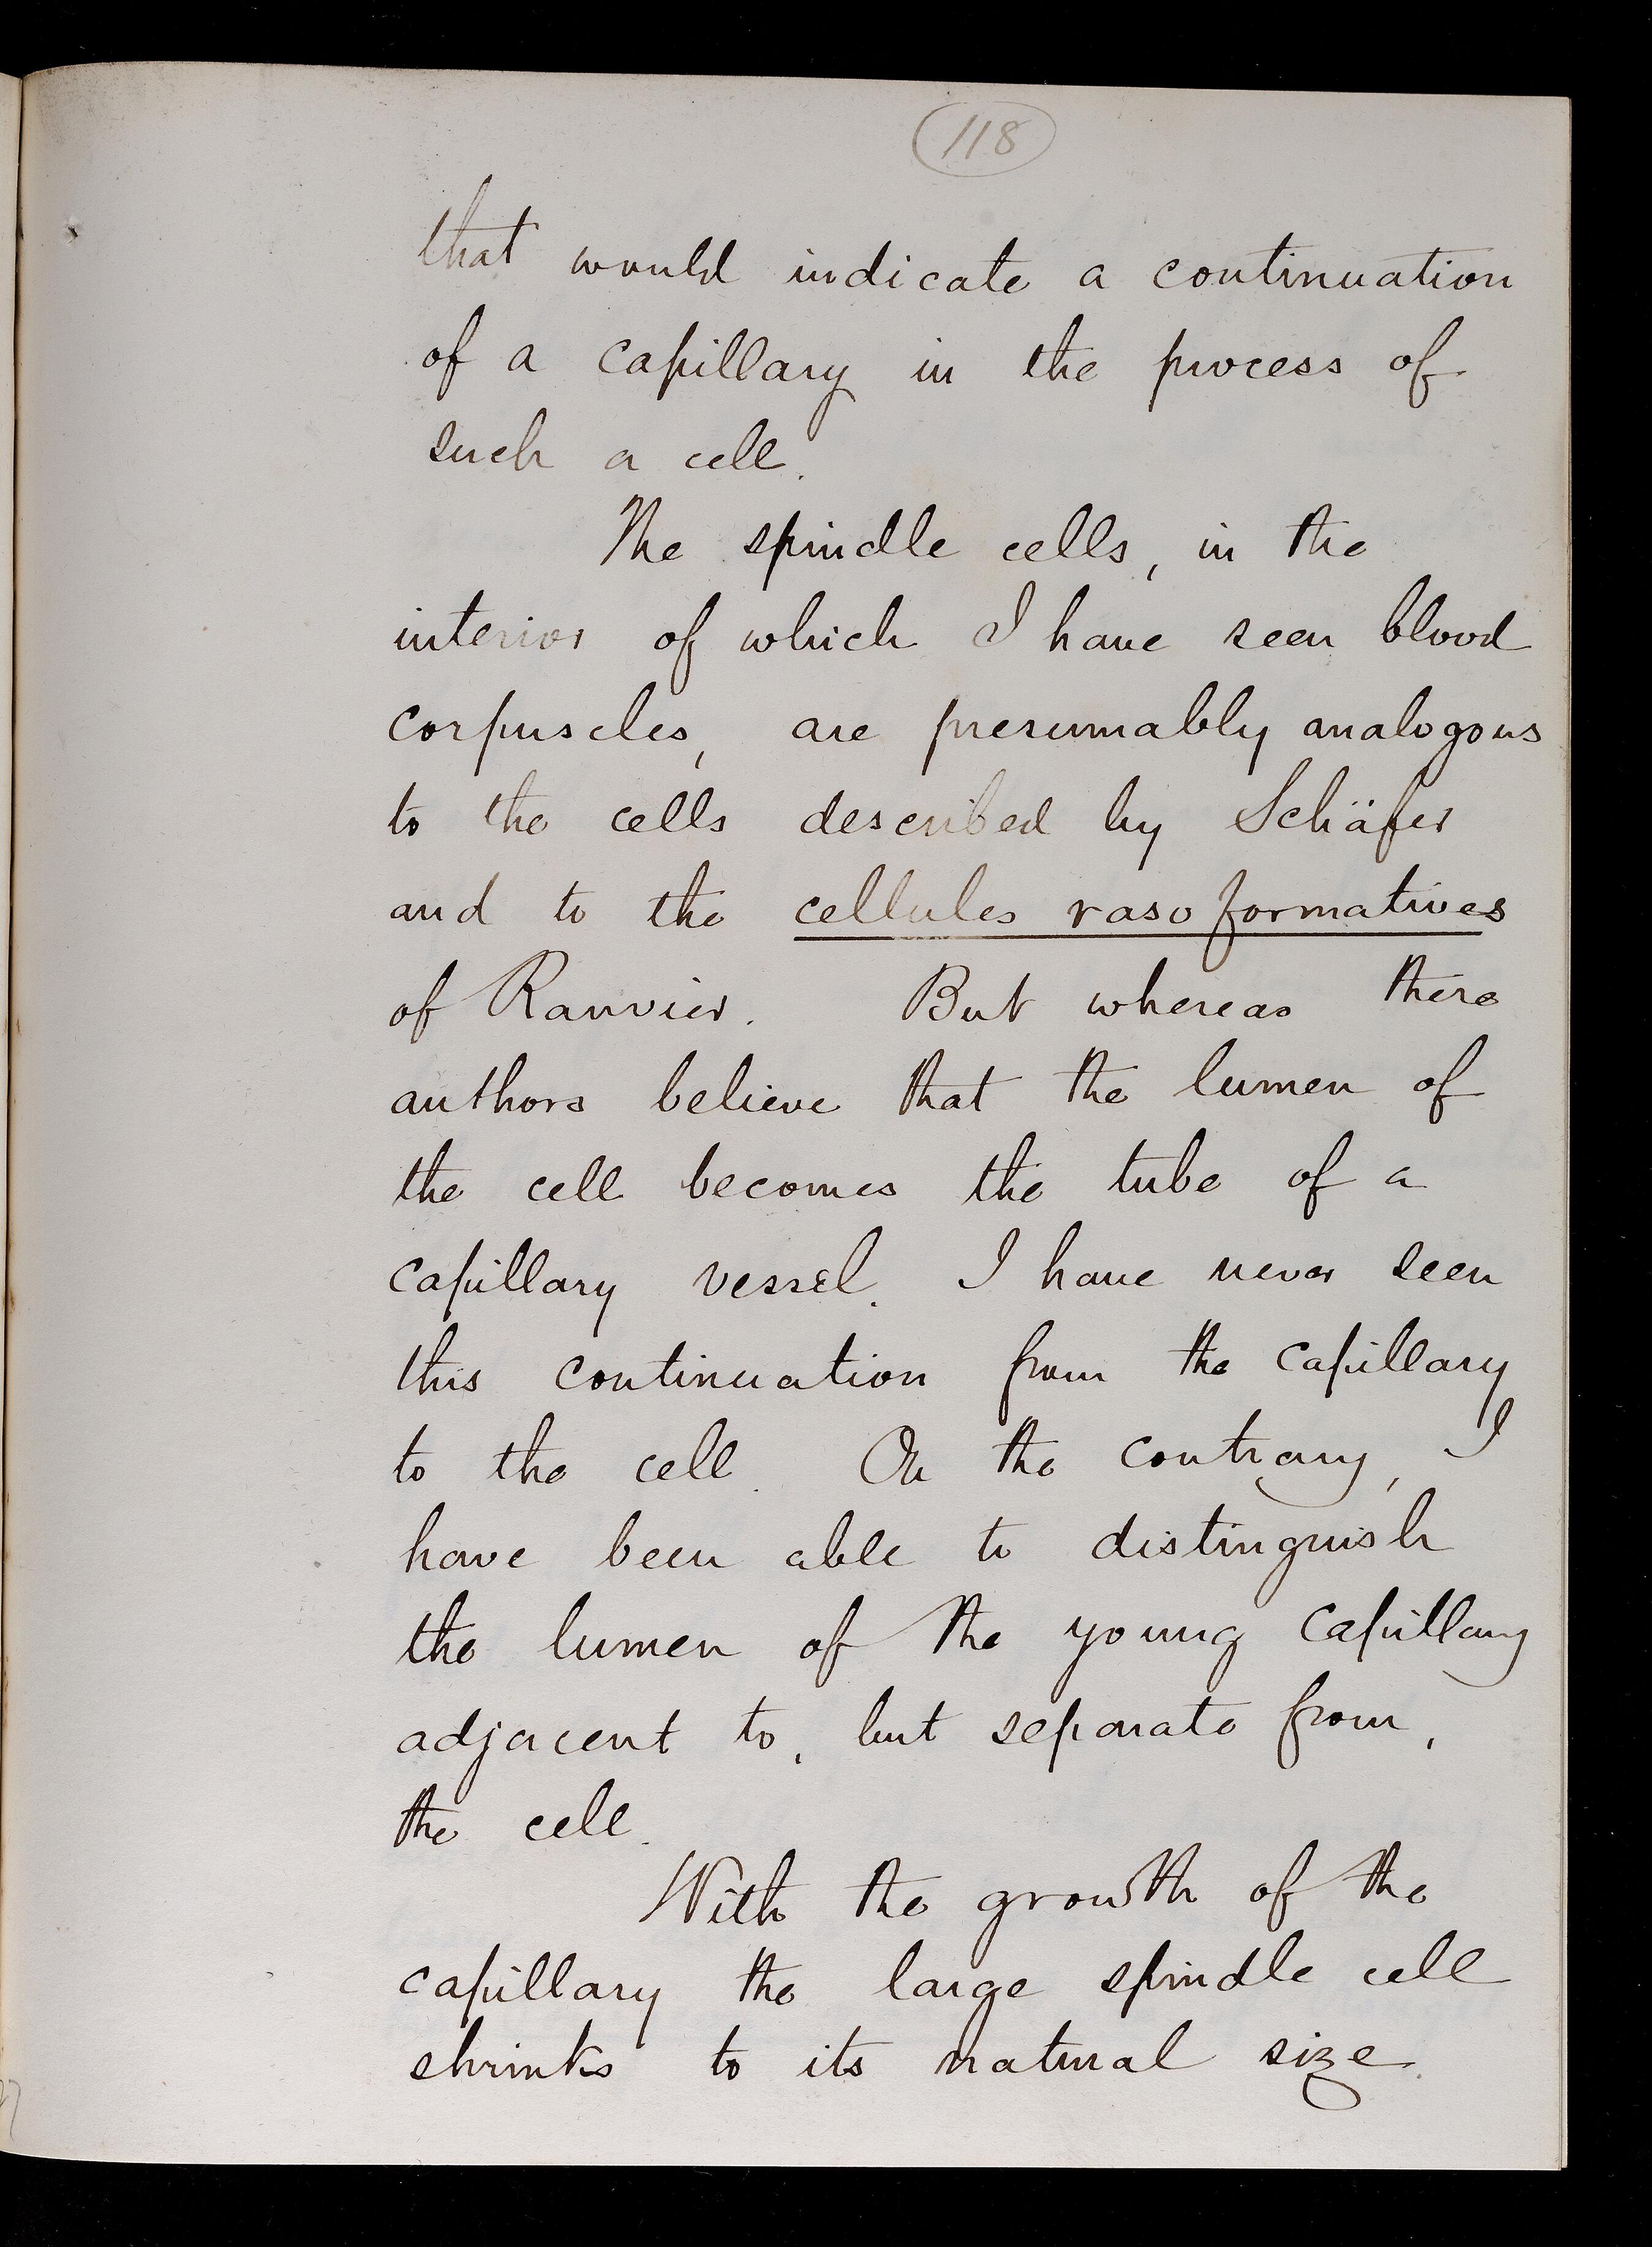 118
that would indicate a continuation
of a capillary in the process of
such a cell.
The spindle cells, in the
interior of which I have seen blood
corpuscles, are presumably analogous
to the cells described by Schäfer
and to the cellules vaso formatives
of Ranvier. But whereas these
authors believe that the lumen of
the cell becomes the tube of a
capillary vessel. I have never seen
this continuation from the capillary
to the cell. On the contrary, I
have been able to distinguish
the lumen of the young capillary
adjacent to, but separate from,
the cell.
With the growth of the
capillary the large spindle cell
shrinks to its natural size.